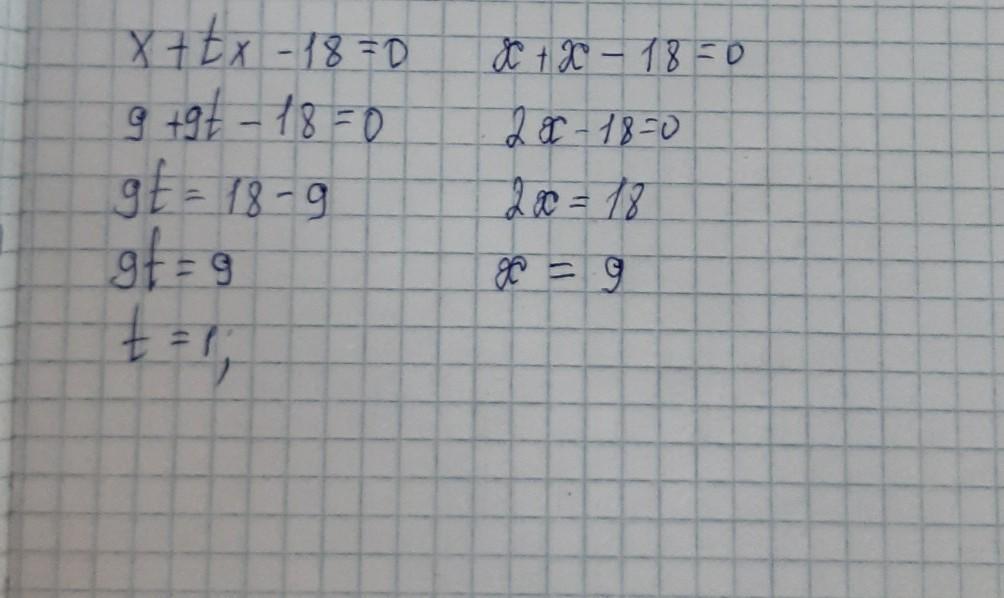 x + tx - 18 = 0
9 + 9t - 18 = 0
9t = 18 - 9
9t = 9
t = 1;
x + x - 18 = 0
2x - 18 = 0
2x = 18
x = 9